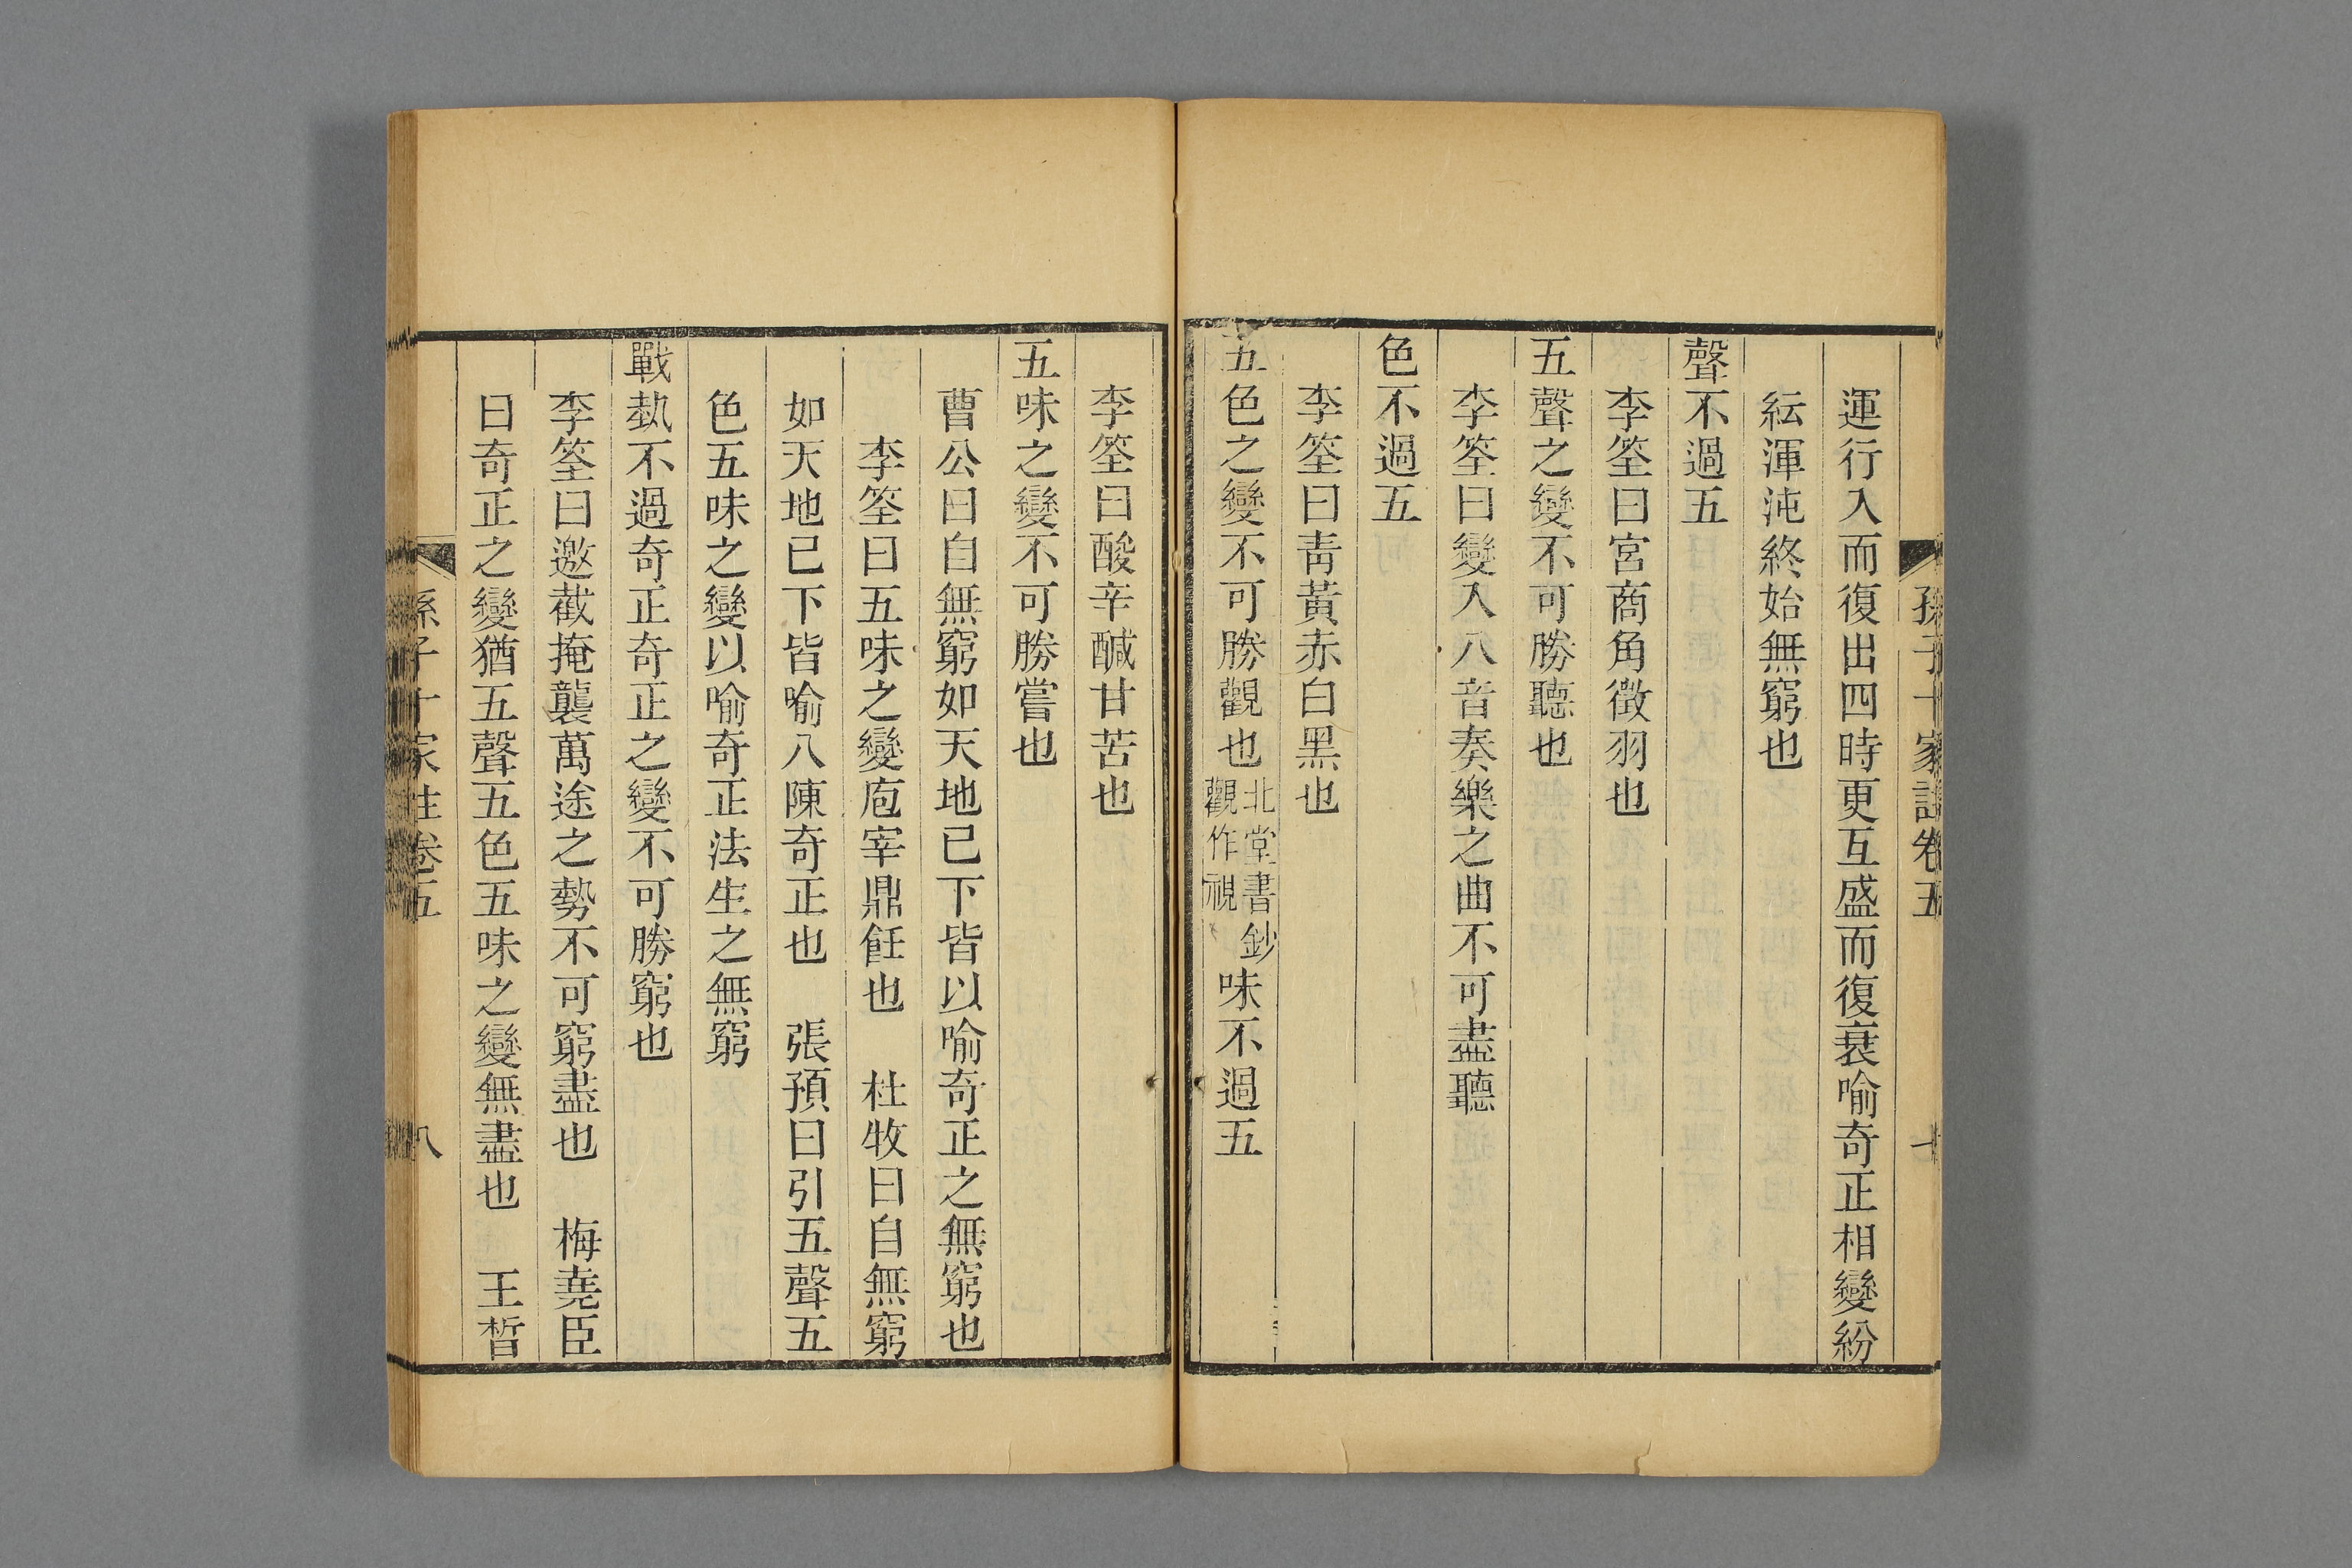 孫子十家註卷五
運行入而復出四時更互盛而復衰喻奇正相變紛
紜渾沌終始無窮也
聲不過五
李筌曰宮商角徵羽也
五聲之變不可勝聽也
李筌曰變入八音奏樂之曲不可盡聽
色不過五
李筌曰靑黃赤白黑也
五色之變不可勝觀也北堂書鈔觀作視味不過五
李筌曰酸辛鹹甘苦也
五味之變不可勝嘗也
曹公曰自無窮如天地已下皆以喻奇正之無窮也
李筌曰五味之變庖宰鼎飪也　杜牧曰自無窮
如天地已下皆喻八陳奇正也　張預曰引五聲五
色五味之變以喻奇正法生之無窮
戰埶不過奇正奇正之變不可勝窮也
李筌曰邀截掩襲萬途之勢不可窮盡也　梅堯臣
曰奇正之變猶五聲五色五味之變無盡也　王晳
孫子十家註卷五　八